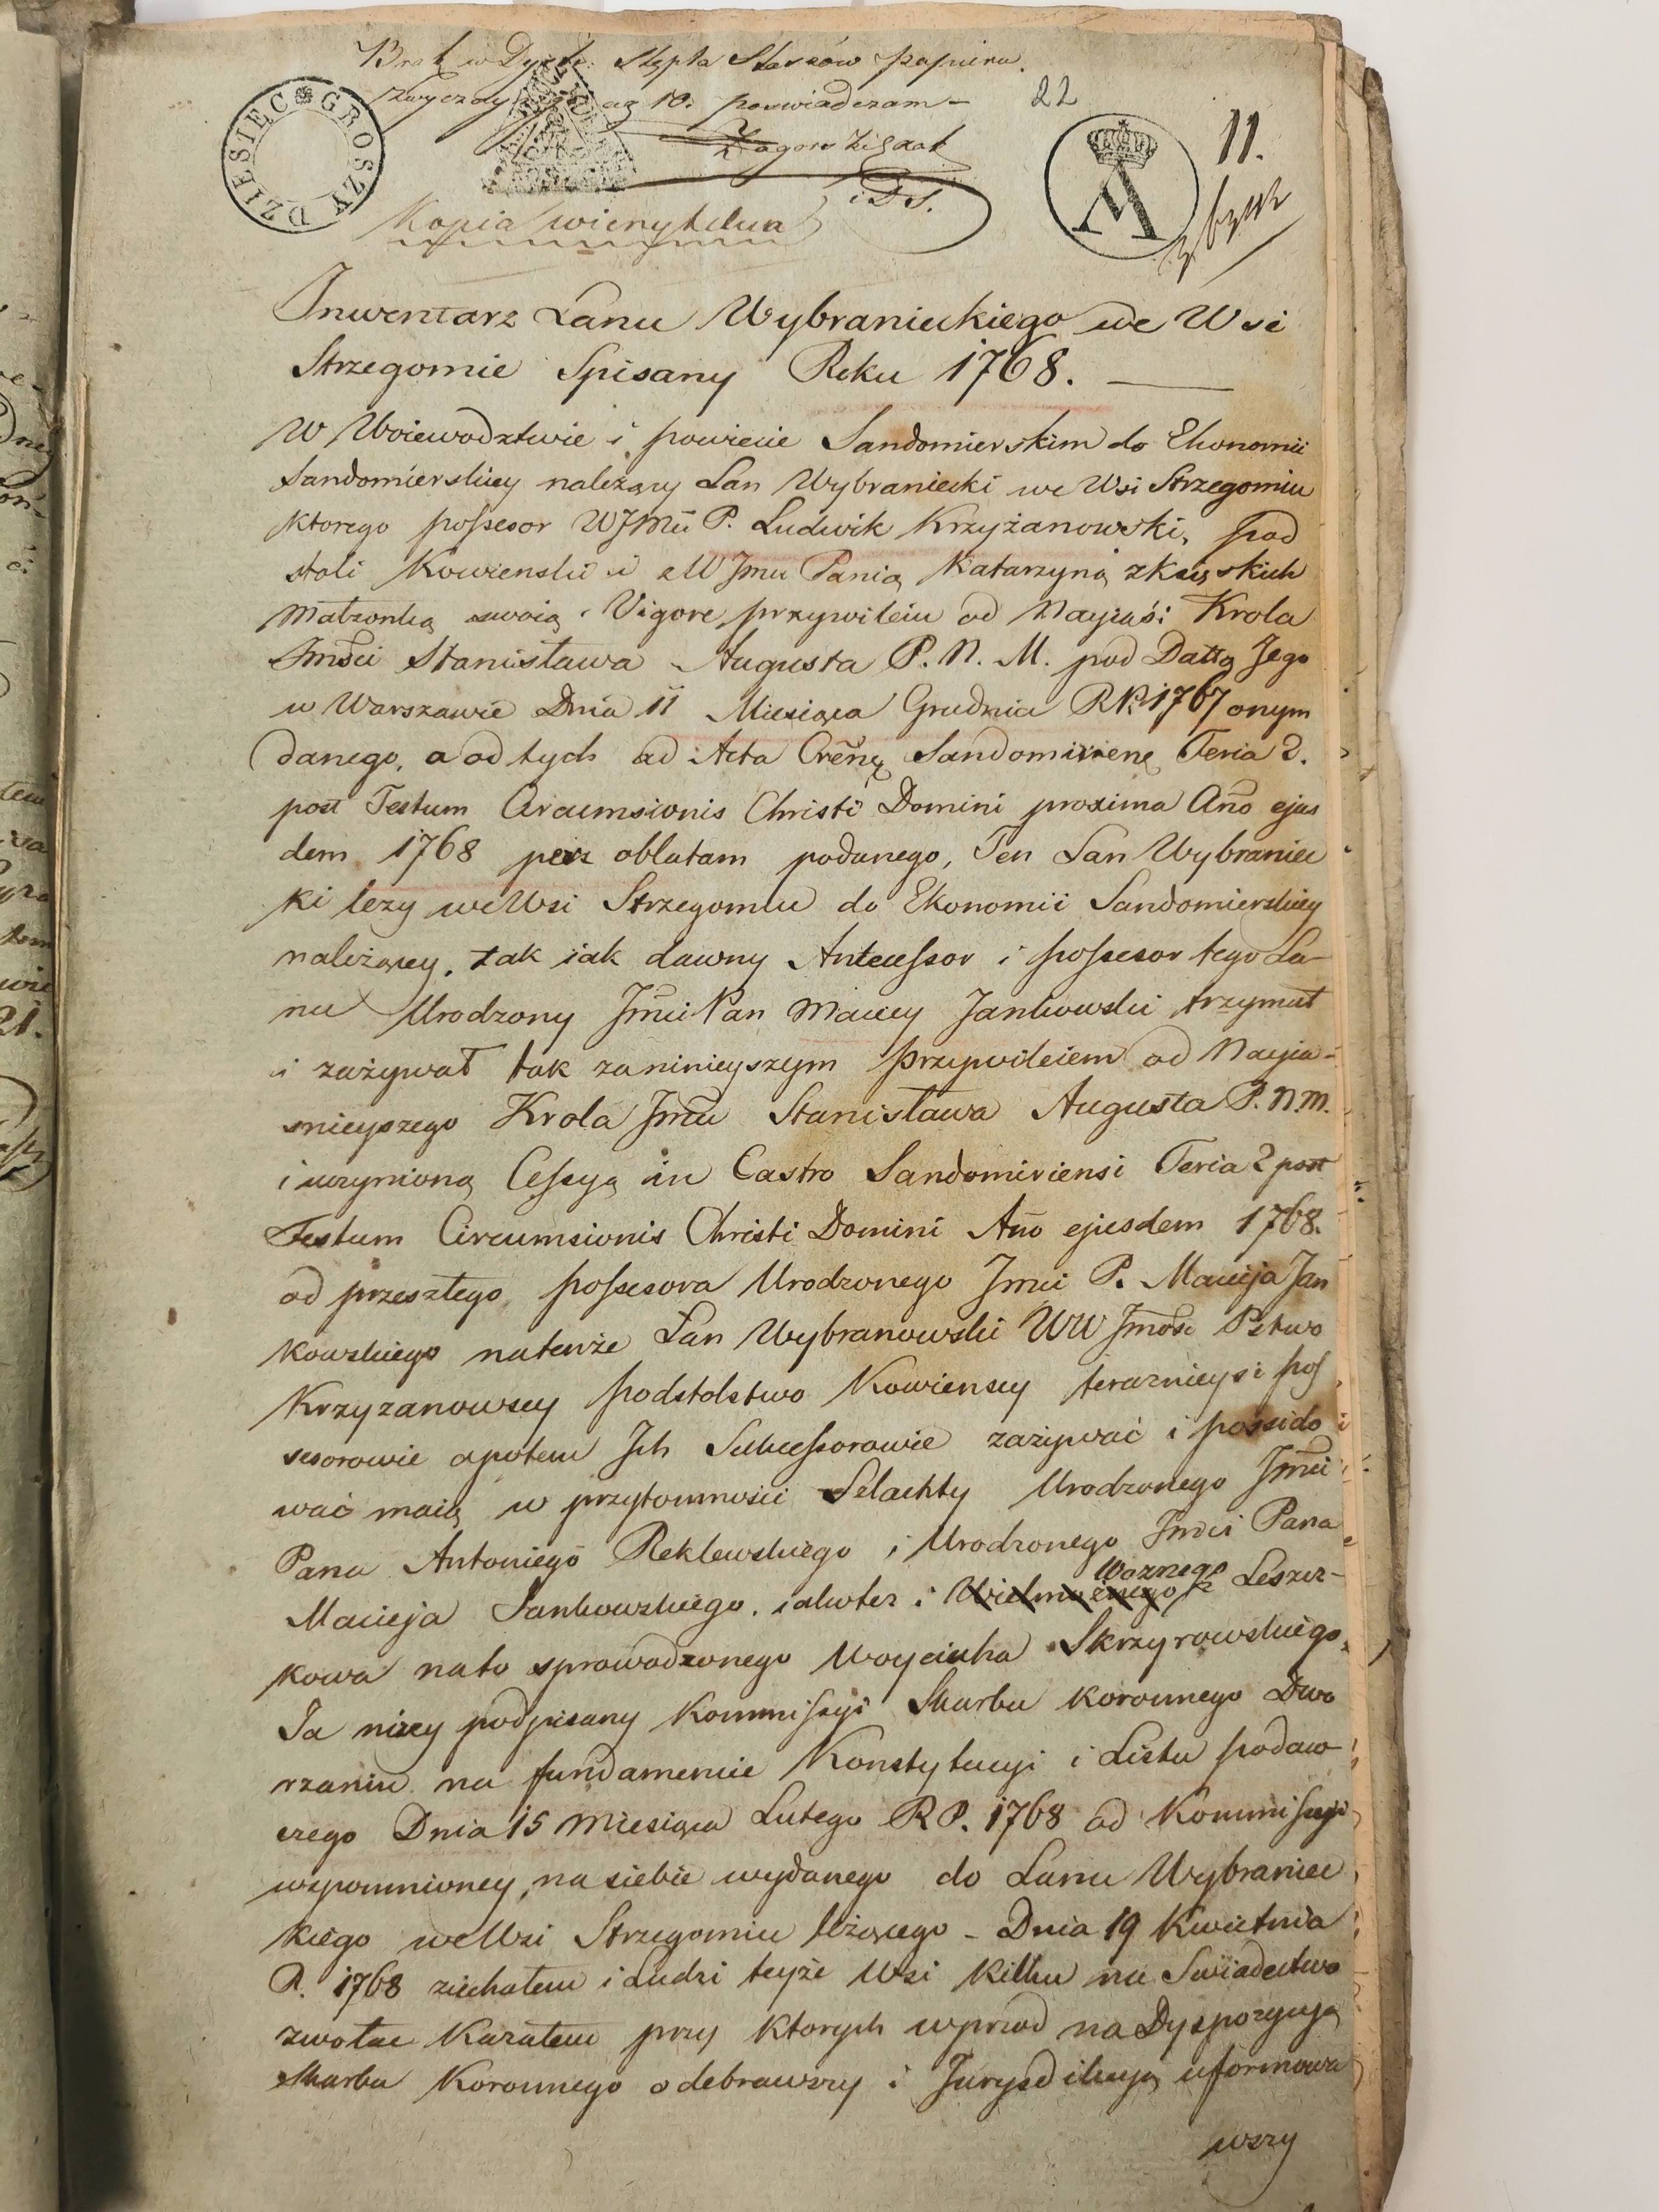 Brak w Dystr: Stępla Starców papieru
zwyczajny gr 10. poswiadczam –
22
11.
DZIESIĘC GROSZY
i D S.
Kopia wierzytelna
Inwentarz Łanu Wybranieckiego we Wsi
Strzegomie Spisany Roku 1768.
W Woiewodztwie i powiecie Sandomierskim do Ekonomii
Sandomierskiey należący Łan Wybraniecki we Wsi Strzegomiu
ktorego possesor WJMci P. Ludwik Krzyżanowski, pod
stoli Kowienski i z W Jmci Panią Katarzyną z
Małzonką swoią Vigore przywileiu od Nayiaśi Krola
Jmości Stanisława Augusta P. N. M. pod Dattą Jego
w Warszawie Dnia 11 Miesiąca Grudnia R P. 1767 onym
danego, a od tych ad Acta Sandomiriene Feria 2.
post Festum Circumsionis Christi Domini proxima Ano ejus
dem 1768 per oblatam podanego, Ten Łan Wybraniec
ki lezy we Wsi Strzegomiu do Ekonomii Sandomierskiey
należącey, tak iak dawny Antecessor i possesor tego Ła–
nu Urodzony Jmci Pan Maciey Jankowski trzymał
i zażywał tak za ninieyszym Przywileiem od Nayia–
snieyszego Krola Jmci Stanisława Augusta P. N. M.
i uczynioną Cessyą in Castro Sandomiriensi Feria 2 post
Festum Circumsionis Christi Domini Ano ejusdem 1768.
od przeszłego possesora Urodzonego Jmci P. Macieja Jan
kowskiego natenże Łan Wybranowski WW Jmość Pstwo
Krzyzanowscy podstolstwo Kowienscy teraznieysi pos
sesorowie a potem Jch Sukcessorowie zażywać i possido
wać maią w przytomności Slachty Urodzonego Jmci
Pana Antoniego Reklewskiego i Urodzonego Jmci Pana
Macieja Jankowskiego. iakotez i Wielmożnego Woznego z Leszcz–
kowa nato sprowadzonego Woyciecha Skrzyrowskiego.
Ja nizey podpisany Kommissyi Skarbu koronnego Dwo
rzanin na fundamencie Konstytucyi i Listu podaw
czego Dnia 15 Miesiąca Lutego R P. 1768 od Kommissyi
wspomnioney, na siebie wydanego do Łanu Wybraniec
kiego we Wsi Strzegomiu leżącego – Dnia 19 Kwietnia
R. 1768 ziechałem i Ludzi teyże Wsi kilku na Swiadectwo
zwołac Kazałem przy ktorych wprzod na Dyspozycyą
Skarbu Koronnego odebrawszy i Jurysdikcyą uformowa
wszy